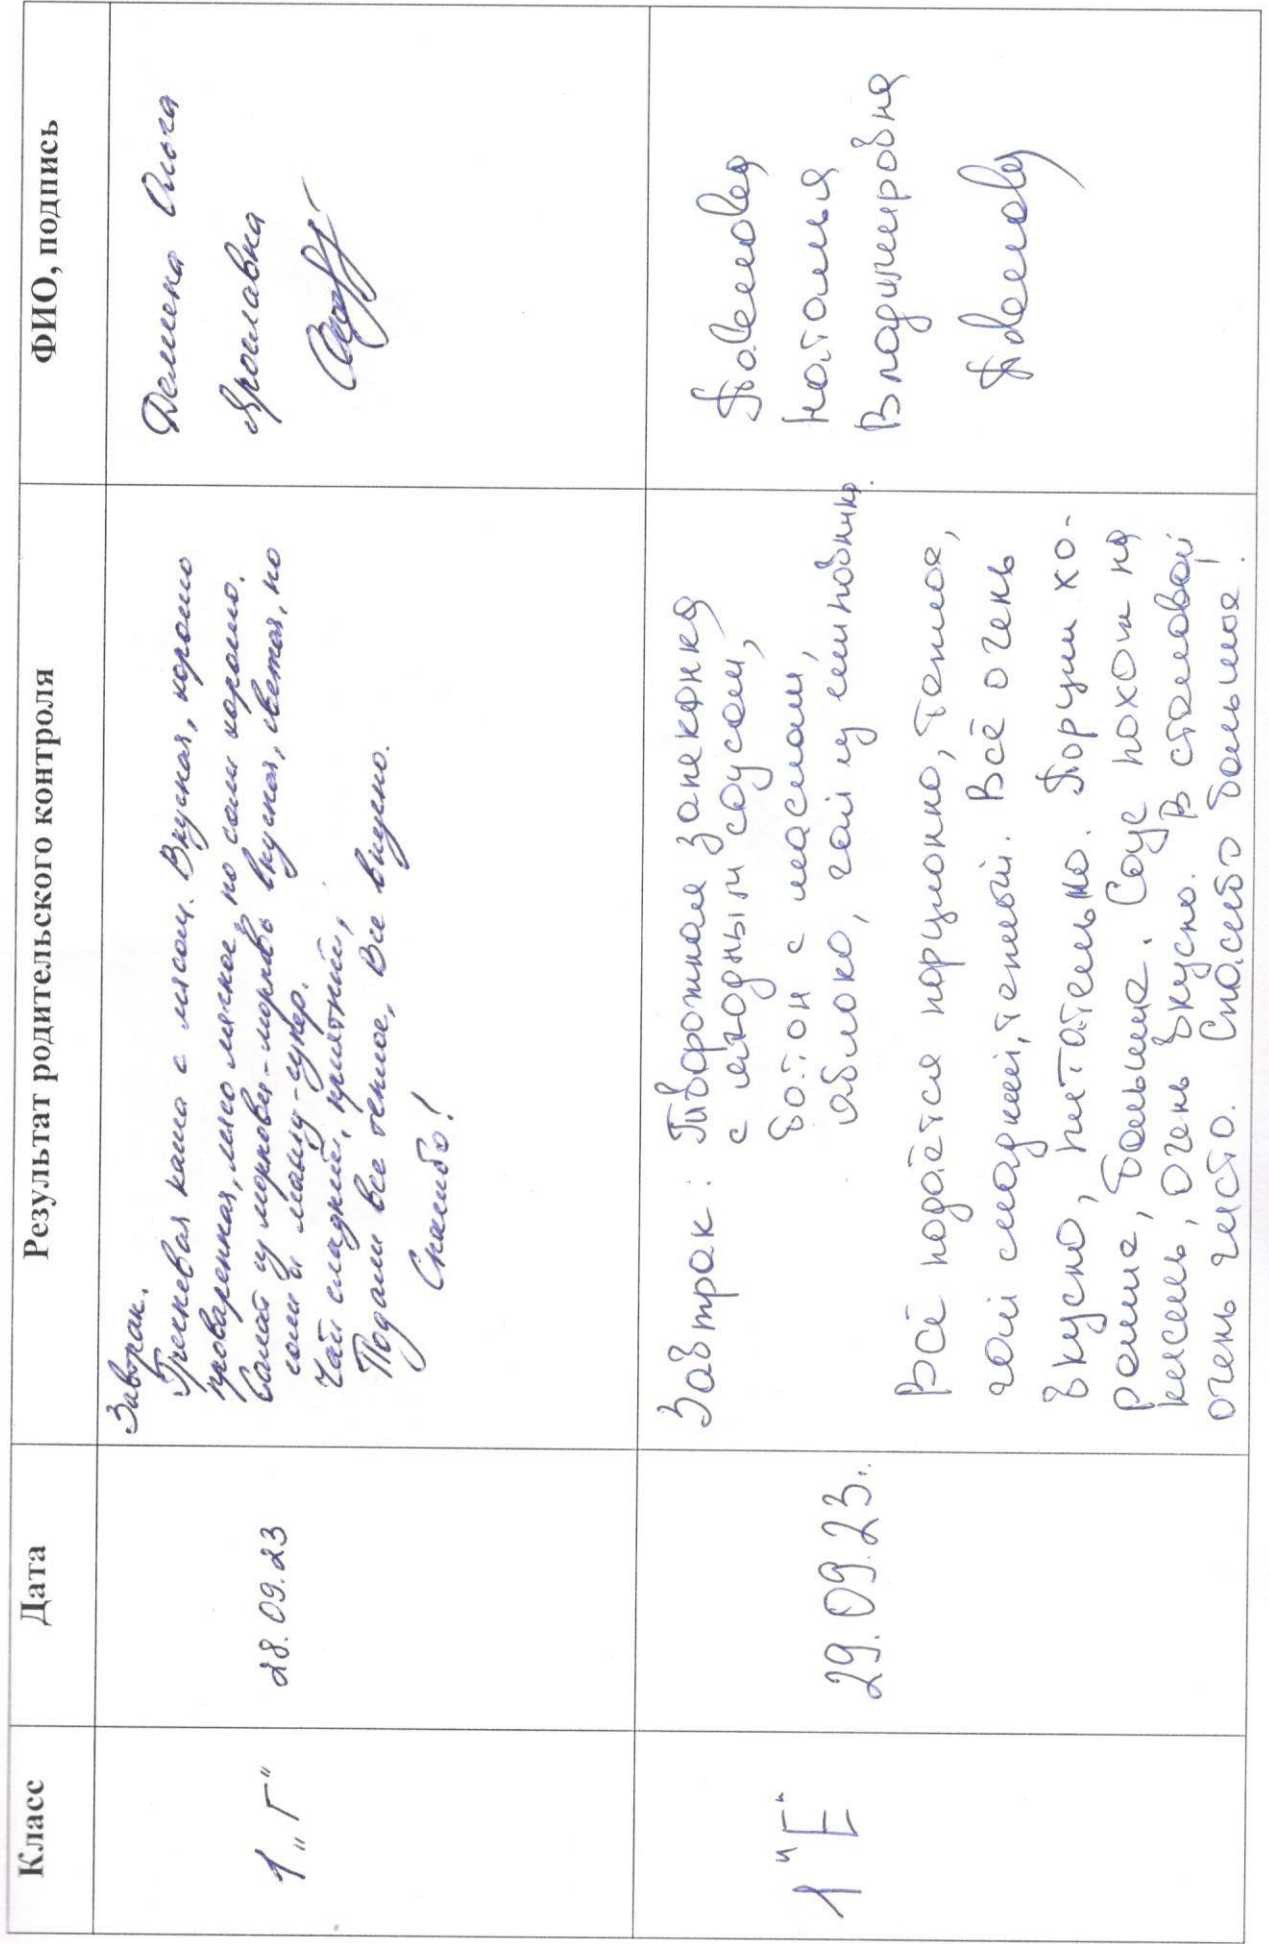 Класс Дата Результат родительского контроля ФИО, подпись
1 "Г"
28.09.23
Завтрак.
Гречневая каша с мясом. Вкусная, хорошо
проваренная, мясо мягкое, по соли хорошо.
Салат из моркови-морковь вкусная, светая, по
соли и маслу-супер.
Чай сладкий, приятный,
Подали все теплое, Все вкусно.
Спасибо!
Ольга
Ярославна
1 "Е"
29.09.23г.
Завтрак: Творожная запеканка
с ягодным соусом,
батон с маслом,
яблоко, чай из шиповника.
Всё подаётся порционно, теплое,
чай сладкий, теплый. Всё очень
вкусно, питательно. Порции хо-
рошие, большие. Соус похож на
кисель, очень вкусно. В столовой
очень чисто. Спасибо большое!
Наталья
Владимировна